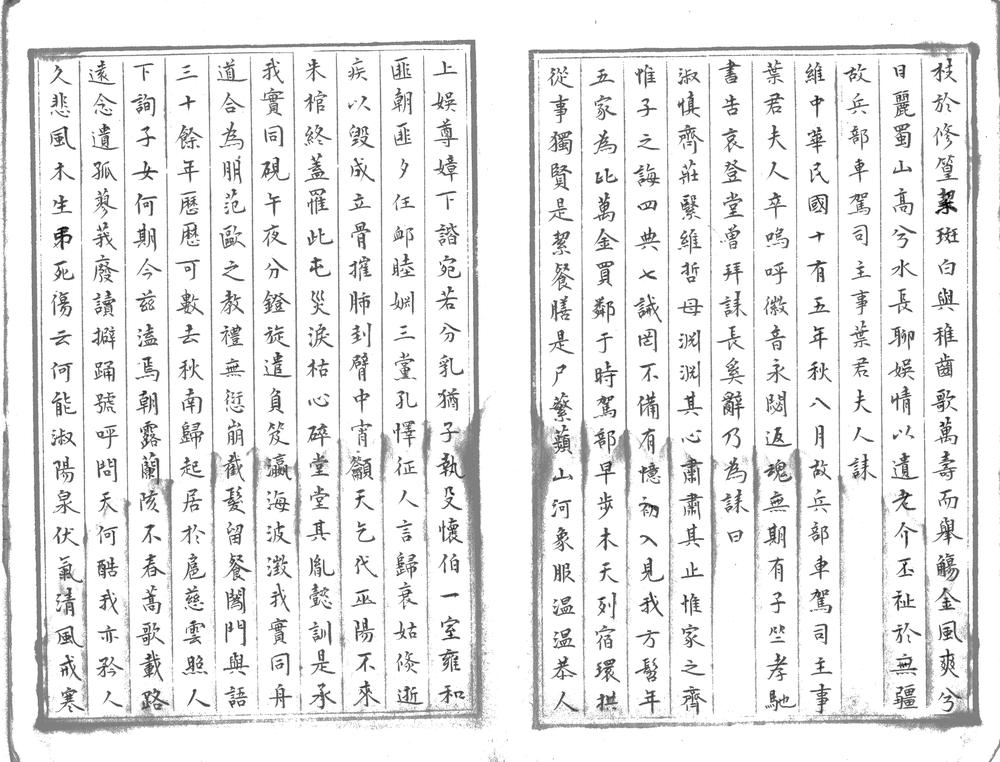 枝於修篁絜斑白與稚齒歌萬壽而舉觴金風爽兮
日麗蜀山高兮水長聊娛情以遺老介丕祉於無疆
故兵部車駕司主事葉君夫人誄
維中華民國十有五年秋八月故兵部車駕司主事
葉君夫人卒嗚呼徽音永閟返魂無期有子竺孝馳
書告哀登堂曾拜誄長奚辭乃為誄曰
淑慎齊莊繄維哲母淵淵其心肅肅其止惟家之齊
惟子之誨四典七誡罔不備有憶初入見我方髫年
五家為比萬金買鄰于時駕部早步木天列宿環拱
從事獨賢是絜餐膳是尸蘩蘋山河象服溫溫恭人
上娛尊嫜下諧宛若分乳猶子執殳懷伯一室雍和
匪朝匪夕任卹睦婣三黨孔懌征人言歸衰姑倏逝
疾以毀成立骨摧肺刲臂中宵籲天乞代巫陽不來
朱棺終蓋罹此屯災淚枯心碎堂堂其胤懿訓是承
我實同硯午夜分鐙旋遣負笈瀛海波澂我實同舟
道合為朋范歐之教禮無愆崩截髮留餐闔門與語
三十餘年歷歷可數去秋南歸起居於扈慈雲照人
下詢子女何期今茲溘焉朝露蘭陔不春蒿歌載路
遠念遺孤蓼莪廢讀擗踊號呼問天何酷我亦矜人
久悲風木生弔死傷云何能淑陽泉伏氣清風戒寒